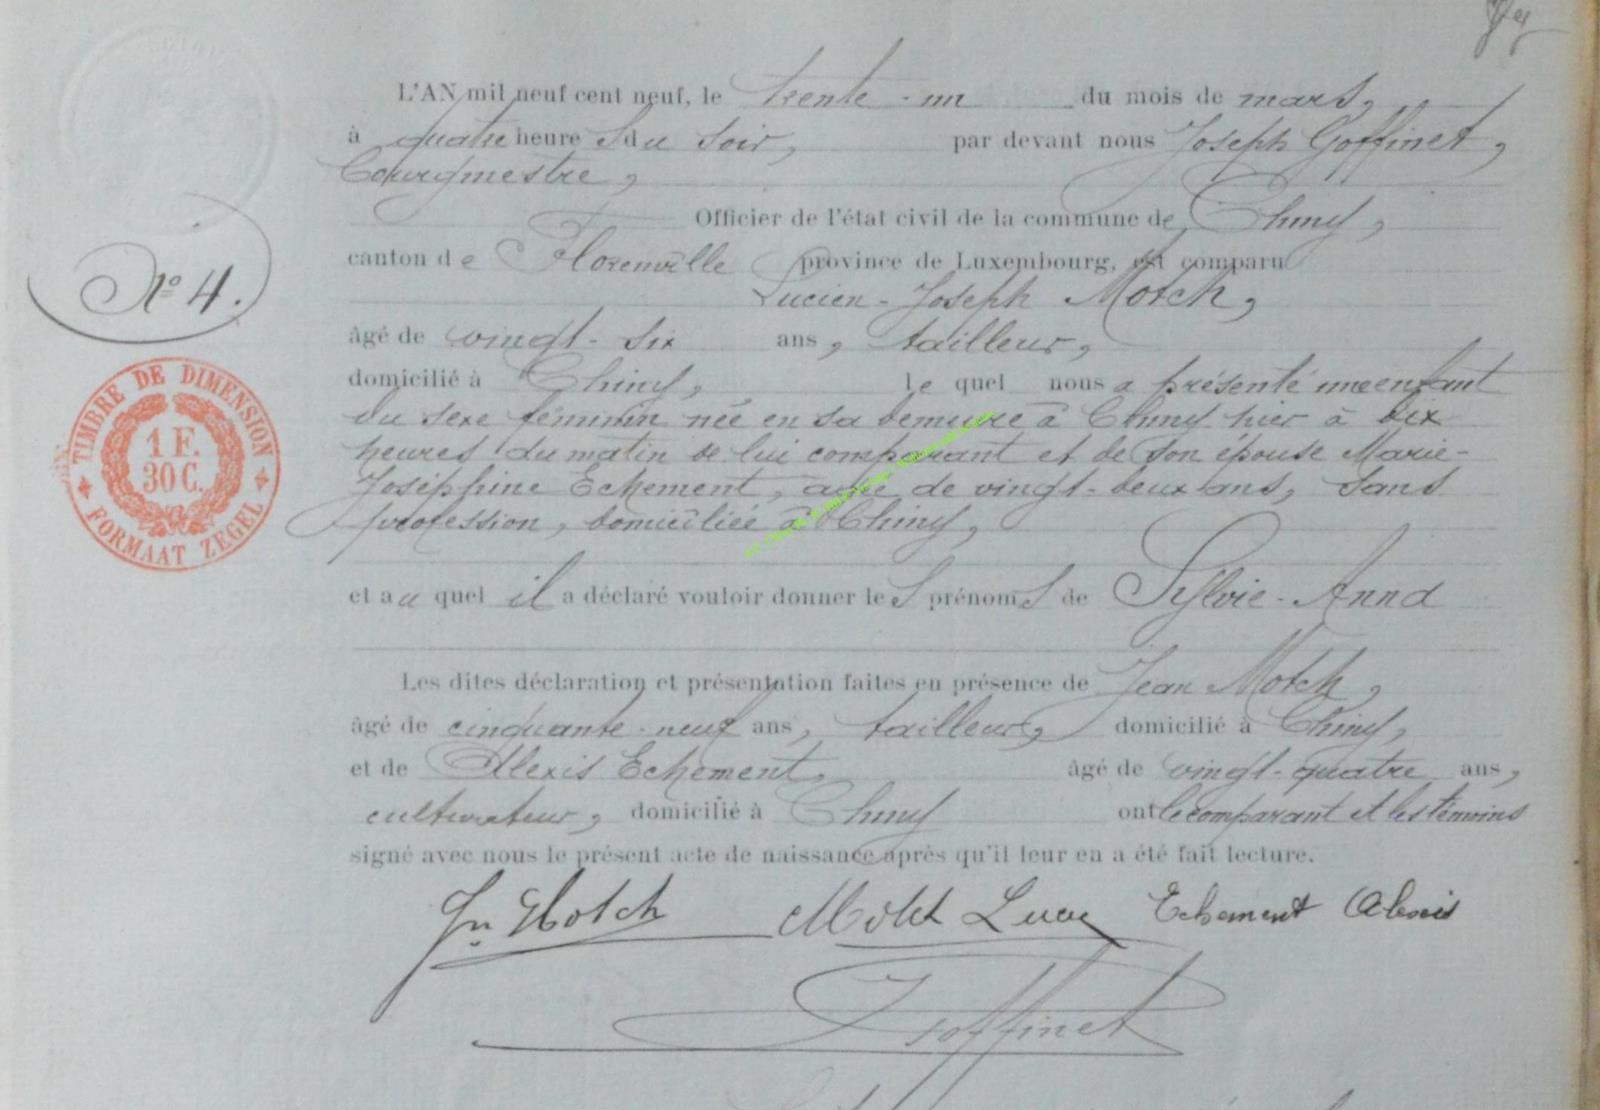 L'AN mil neuf cent neuf, le trente-un du mois de mars,
à quatre heures du soir, par devant nous Joseph Goffinet,
Bourgmestre,
Officier de l'état civil de la commune de Chiny,
N° 4.
canton de Florenville province de Luxembourg, est comparu
Lucien-Joseph Motch,
âgé de vingt-six ans, tailleur,
domicilié à Chiny, lequel nous a présenté un enfant
du sexe féminin née en sa demeure à Chiny hier à dix
heures du matin de lui comparant et de son épouse Marie-
Joséphine Echement, âgée de vingt-deux ans, sans
profession, domiciliée à Chiny,
et auquel il a déclaré vouloir donner les prénoms de Sylvie-Anna
Les dites déclaration et présentation faites en présence de Jean Motch,
âgé de cinquante-neuf ans, tailleur, domicilié à Chiny,
et de Alexis Echement, âgé de vingt-quatre ans,
cultivateur, domicilié à Chiny ont le comparant et les témoins
signé avec nous le présent acte de naissance après qu'il leur en a été fait lecture.
Jn Motch Motch Lucien Echement Alexis
J Goffinet
TIMBRE DE DIMENSION
1 F.
30 C.
FORMAAT ZEGEL